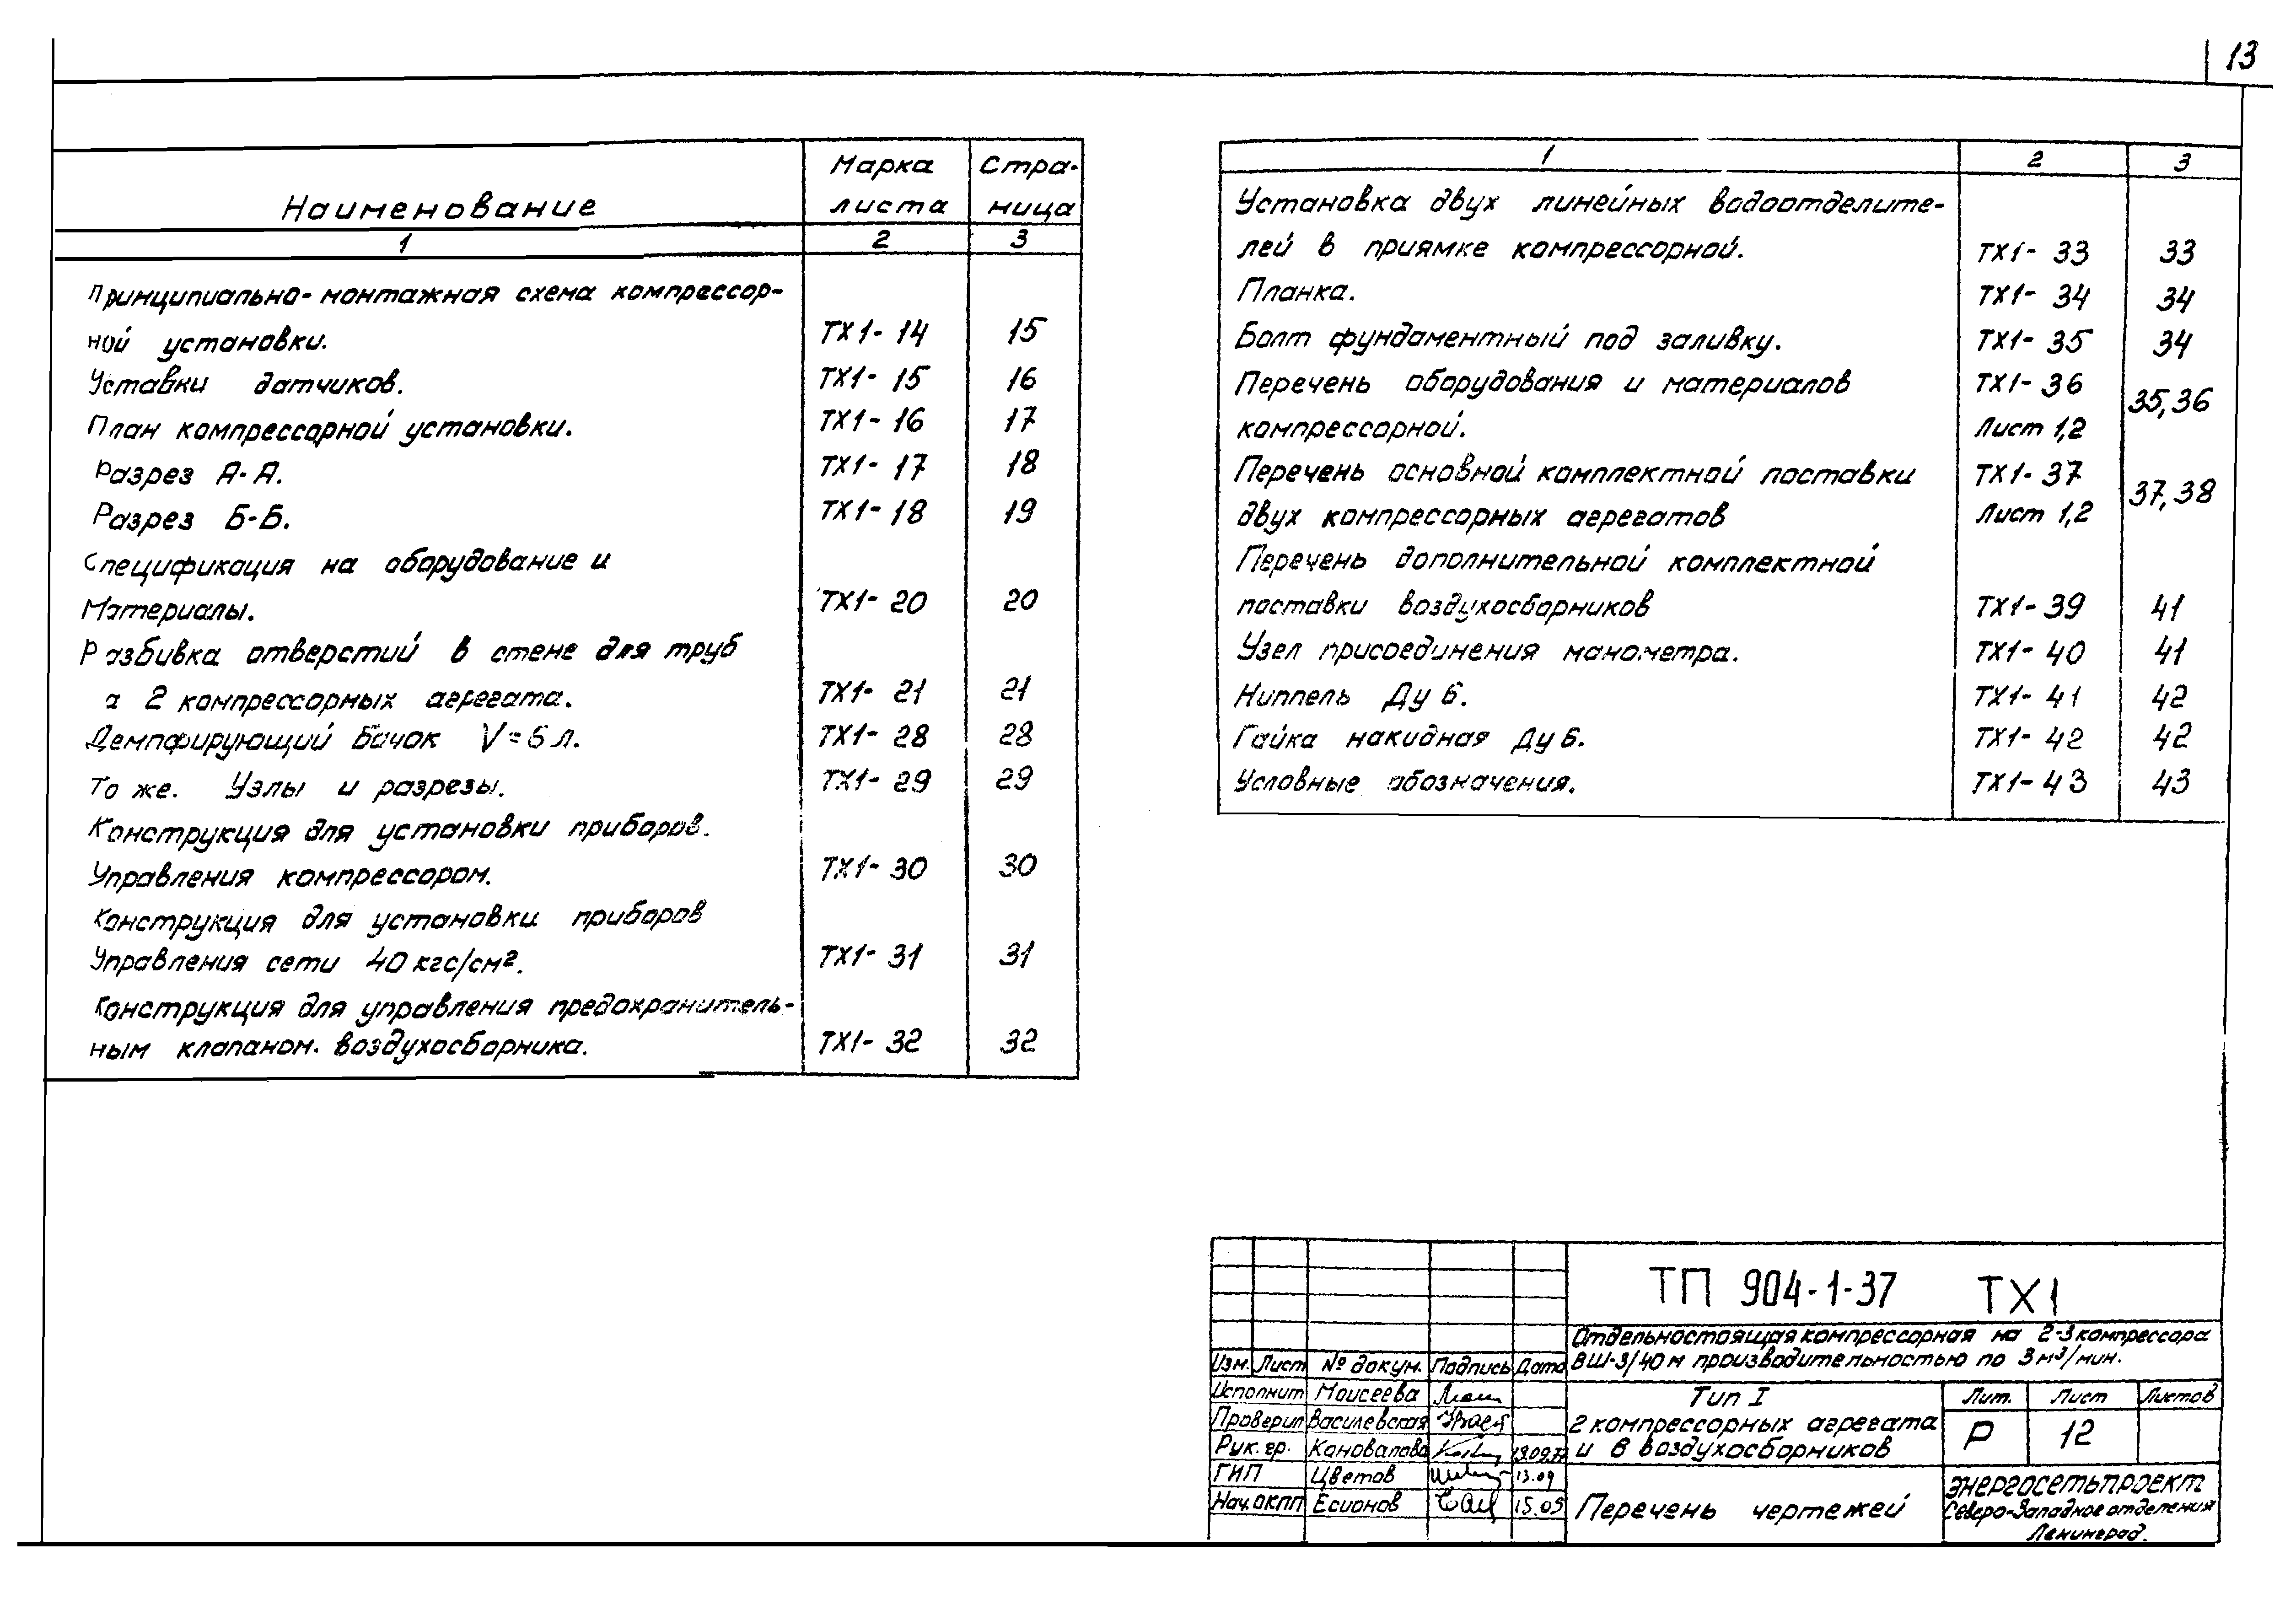 13
Наименование Марка листа Стра-ница
1 2 3
Принципиально-монтажная схема компрессор-
ной установки. ТХ1-14 15
Уставки датчиков. ТХ1-15 16
План компрессорной установки. ТХ1-16 17
Разрез А-А. ТХ1-17 18
Разрез Б-Б. ТХ1-18 19
Спецификация на оборудование и
Материалы. ТХ1-20 20
Разбивка отверстий в стене для труб
а 2 компрессорных агрегата. ТХ1-21 21
Демпфирующий бачок V=6л. ТХ1-28 28
То же. Узлы и разрезы. ТХ1-29 29
Конструкция для установки приборов.
Управления компрессором. ТХ1-30 30
Конструкция для установки приборов
Управления сети 40 кгс/см². ТХ1-31 31
Конструкция для управления предохранитель-
ным клапаном. воздухосборника. ТХ1-32 32
1 2 3
Установка двух линейных водоотделите-
лей в приямке компрессорной. ТХ1-33 33
Планка. ТХ1-34 34
Болт фундаментный под заливку. ТХ1-35 34
Перечень оборудования и материалов ТХ1-36 35,36
компрессорной. Лист 1,2
Перечень основной комплектной поставки ТХ1-37 37,38
двух компрессорных агрегатов Лист 1,2
Перечень дополнительной комплектной
поставки воздухосборников ТХ1-39 41
Узел присоединения манометра. ТХ1-40 41
Ниппель Ду 6. ТХ1-41 42
Гайка накидная Ду 6. ТХ1-42 42
Условные обозначения. ТХ1-43 43
ТП 904-1-37 ТХ1
Отдельностоящая компрессорная на 2-3 компрессора
ВШ-3/40м производительностью по 3 м³/мин.
Изм. Лист № докум. Подпись Дата
Исполнит Моисеева
Проверил Василевская
Рук. гр. Коновалова 13.09.77
ГИП Цветов 13.09
Нач. ОКПП Есионов 15.09
Тип I
2 компрессорных агрегата
и 6 воздухосборников
Лит. Лист Листов
Р 12
Перечень чертежей
Энергосетьпроект
Северо-Западное отделения
Ленинград.